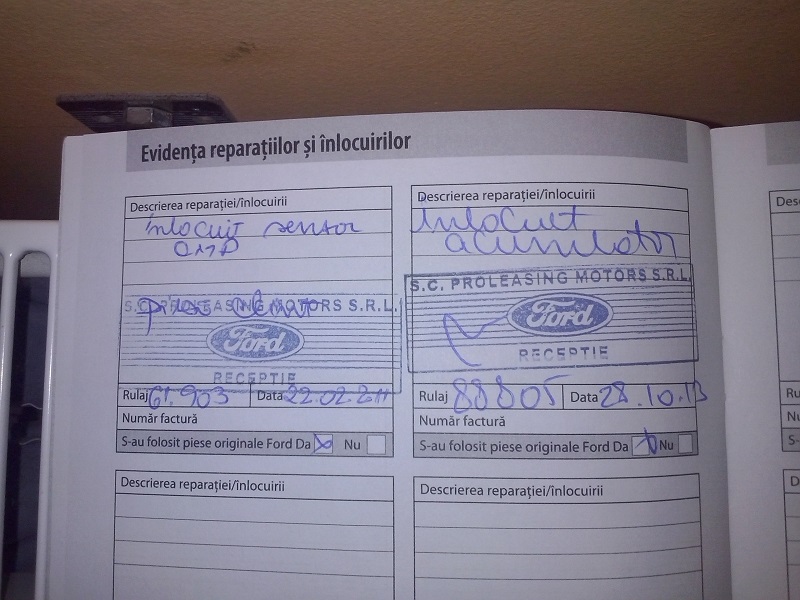 Evidența reparațiilor și înlocuirilor
Descrierea reparației/înlocuirii
înlocuit sensor
CMP
S.C. PROLEASING MOTORS S.R.L.
Ford
RECEPTIE
Rulaj 61.903 Data 22.02.2011
Număr factură
S-au folosit piese originale Ford Da Nu
Descrierea reparației/înlocuirii
înlocuit
acumulator
S.C. PROLEASING MOTORS S.R.L.
Ford
RECEPTIE
Rulaj 88805 Data 28.10.13
Număr factură
S-au folosit piese originale Ford Da Nu
Descrierea reparației/înlocuirii
Descrierea reparației/înlocuirii